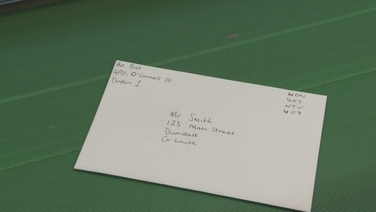 An Post
GPO, O'Connell St
Dublin 1
Mr Smith
123 Main Street
Dundalk
Co Louth